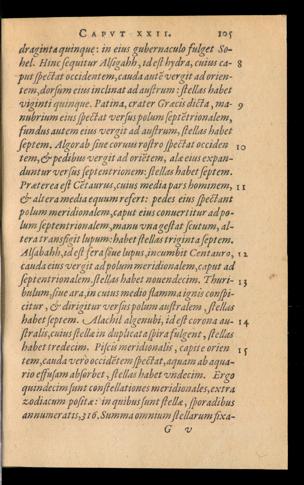 CAPVT XXII. 105
draginta quinque: in eius gubernaculo fulget So-
hel. Hinc sequitur Alsigahh, id est hydra, cuius ca- 8
put spectat occidentem, cauda autē vergit ad orien-
tem, dorsum eius inclinat ad austrum: stellas habet
viginti quinque. Patina, crater Græcis dicta, ma- 9
nubrium eius spectat versus polum septētrionalem,
fundus autem eius vergit ad austrum, stellas habet
septem. Algorab siue coruus rostro spectat occiden 10
tem, & pedibus vergit ad oriētem, ala eius expan-
duntur versus septentrionem: stellas habet septem.
Præterea est Cētaurus, cuius media pars hominem, 11
& altera media equum refert: pedes eius spectant
polum meridionalem, caput eius conuertitur ad po-
lum septentrionalem, manu vna gestat scutum, al-
tera transfigit lupum: habet stellas triginta septem.
Alsabahh, id est fera siue lupus, incumbit Centauro, 12
cauda eius vergit ad polum meridionalem, caput ad
septentrionalem. stellas habet nouendecim. Thuri- 13
bulum, siue ara, in cuius medio flamma ignis conspi-
citur, & dirigitur versus polum australem, stellas
habet septem. Alachil algenubi, id est corona au- 14
stralis, cuius stellæ in duplicata spira fulgent, stellas
habet tredecim. Piscis meridionalis, capite orien 15
tem, cauda vero occidētem spectat, aquam ab aqua-
rio effusam absorbet, stellas habet vndecim. Ergo
quindecim sunt constellationes meridionales, extra
zodiacum positæ: in quibus sunt stellæ, sporadibus
annumeratis, 316. Summa omnium stellarum fixa-
G v